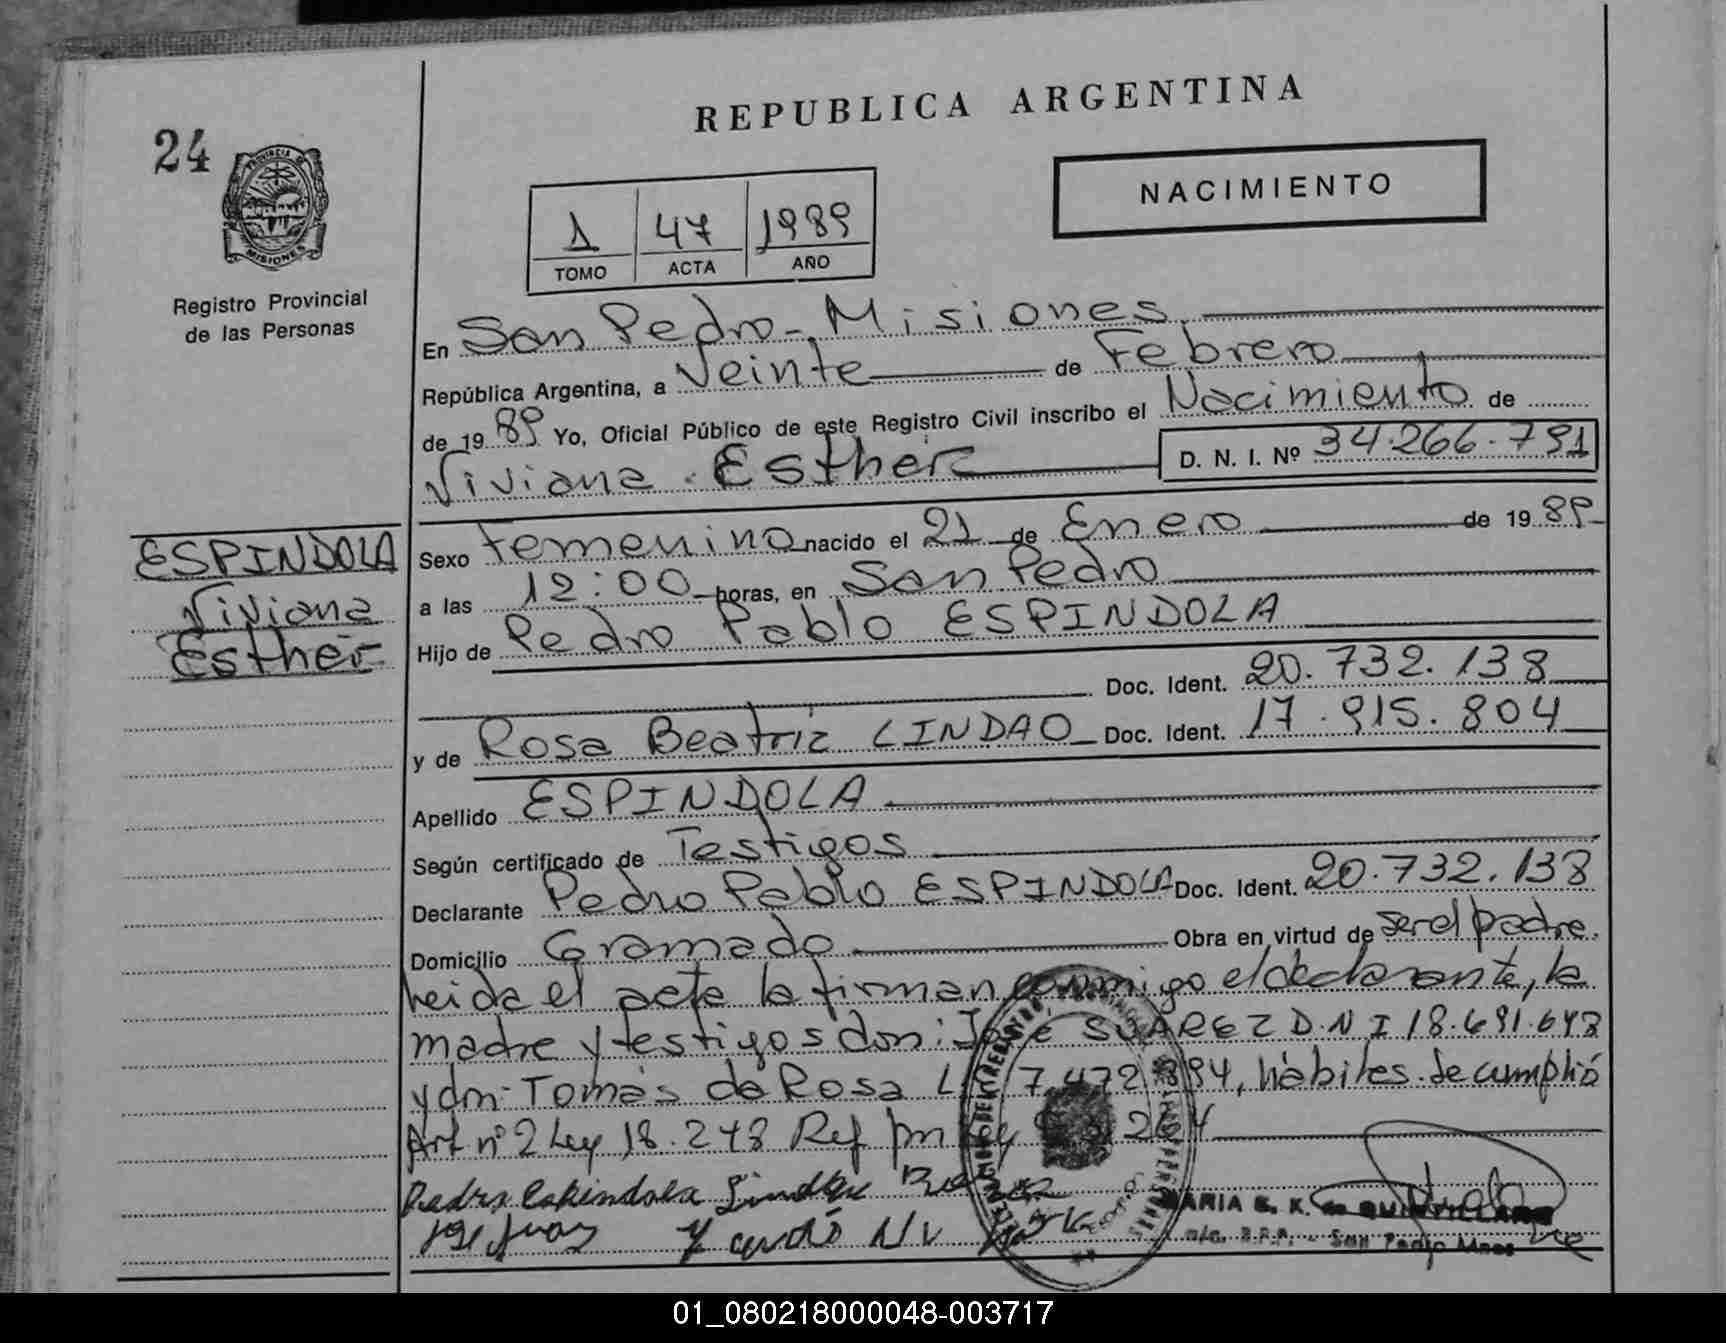 24
PROVINCIA DE
MISIONES
Registro Provincial
de las Personas
ESPINDOLA
Viviana
Esther
REPUBLICA ARGENTINA
NACIMIENTO
1 47 1989
TOMO ACTA AÑO
En San Pedro - Misiones
República Argentina, a Veinte de Febrero
de 1989 Yo, Oficial Público de este Registro Civil inscribo el Nacimiento de
Viviana Esther D. N. I. Nº 34.266.791
Sexo femenino nacido el 21 de Enero de 1989
a las 12:00 horas, en San Pedro
Hijo de Pedro Pablo ESPINDOLA
Doc. Ident. 20.732.138
y de Rosa Beatriz LINDAO Doc. Ident. 17.915.804
Apellido ESPINDOLA
Según certificado de Testigos
Declarante Pedro Pablo ESPINDOLA Doc. Ident. 20.732.138
Domicilio Gramado Obra en virtud de ser el padre.
Leida el acta la firman conmigo el declarante, la
madre y testigos don: José SUAREZ D.N.I 18.691.648
y don: Tomás da Rosa 7.472.894, hábiles. Se cumplió
Art nº 2 Ley 18.248 Ref por
Pedro Espindola
MARIA E. K. de
a/c. R.P.P. - San Pedro Mnes
01_080218000048-003717